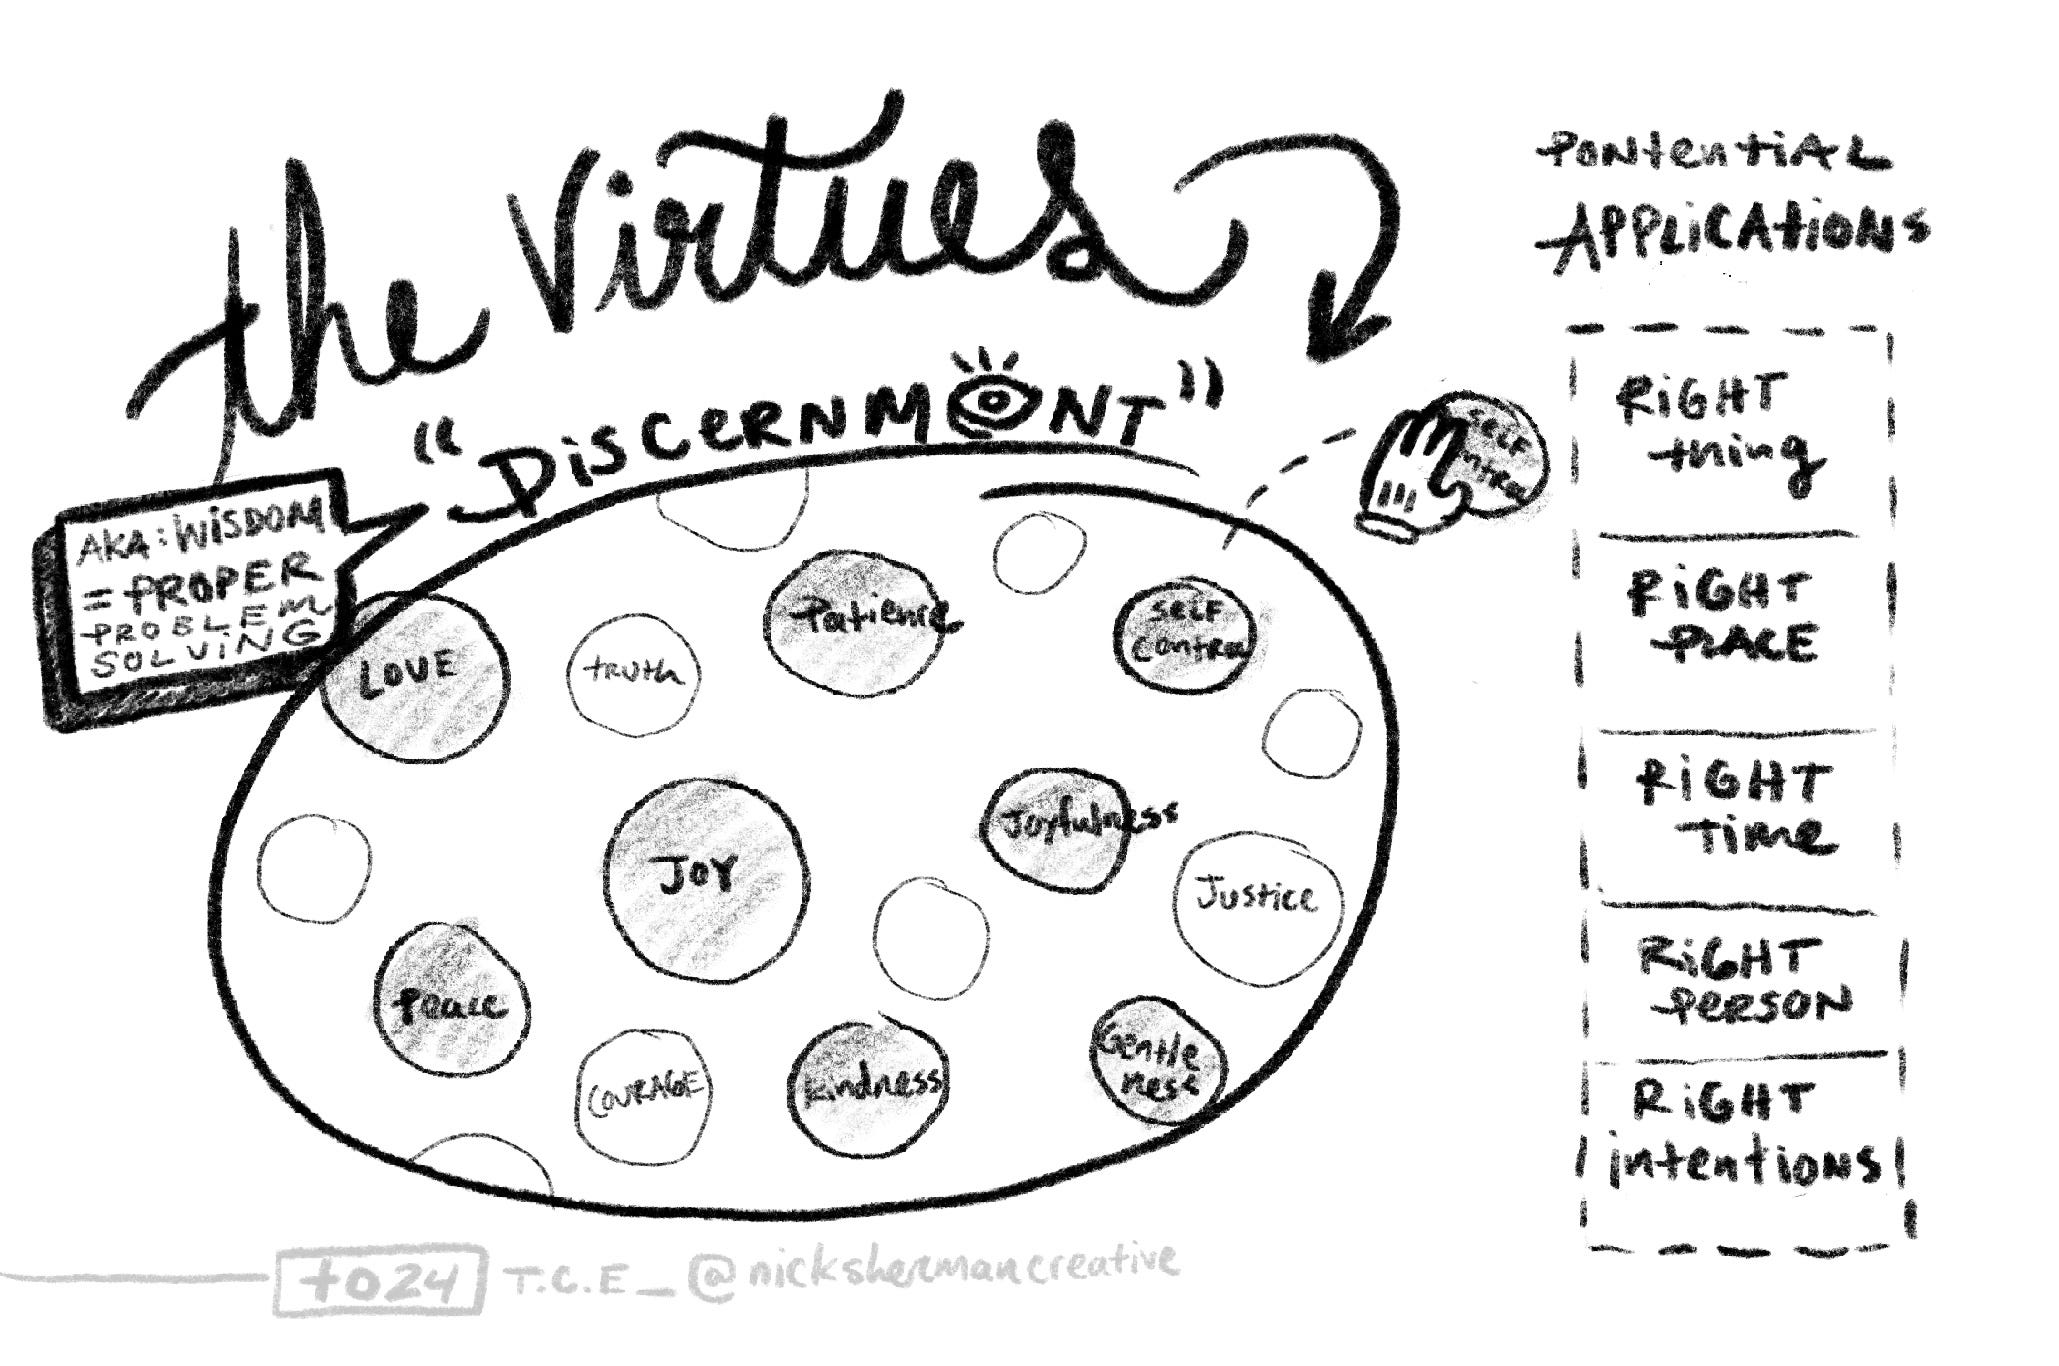 the virtues
"DISCERNMENT"
AKA: WISDOM
= PROPER
PROBLEM
SOLVING
LOVE
truth
Patience
SELF
CONTROL
JOY
Joyfulness
Justice
Peace
COURAGE
kindness
Gentle
ness
SELF
CONTROL
PONtentiAL
APPLiCAtiONs
RiGHT
thing
RiGHT
PLACE
RiGHT
Time
RiGHT
PERSON
RiGHT
intentions
to24 T.C.E_@nickshermancreative